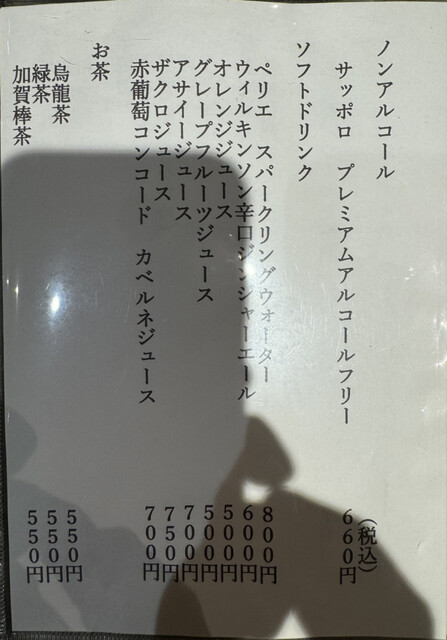 ノンアルコール
(税込)
サッポロ プレミアムアルコールフリー 660円
ソフトドリンク
ペリエ スパークリングウォーター 800円
ウィルキンソン辛口ジンジャーエール 600円
オレンジジュース 500円
グレープフルーツジュース 500円
アサイージュース 700円
ザクロジュース 750円
赤葡萄コンコード カベルネジュース 700円
お茶
烏龍茶 550円
緑茶 550円
加賀棒茶 550円